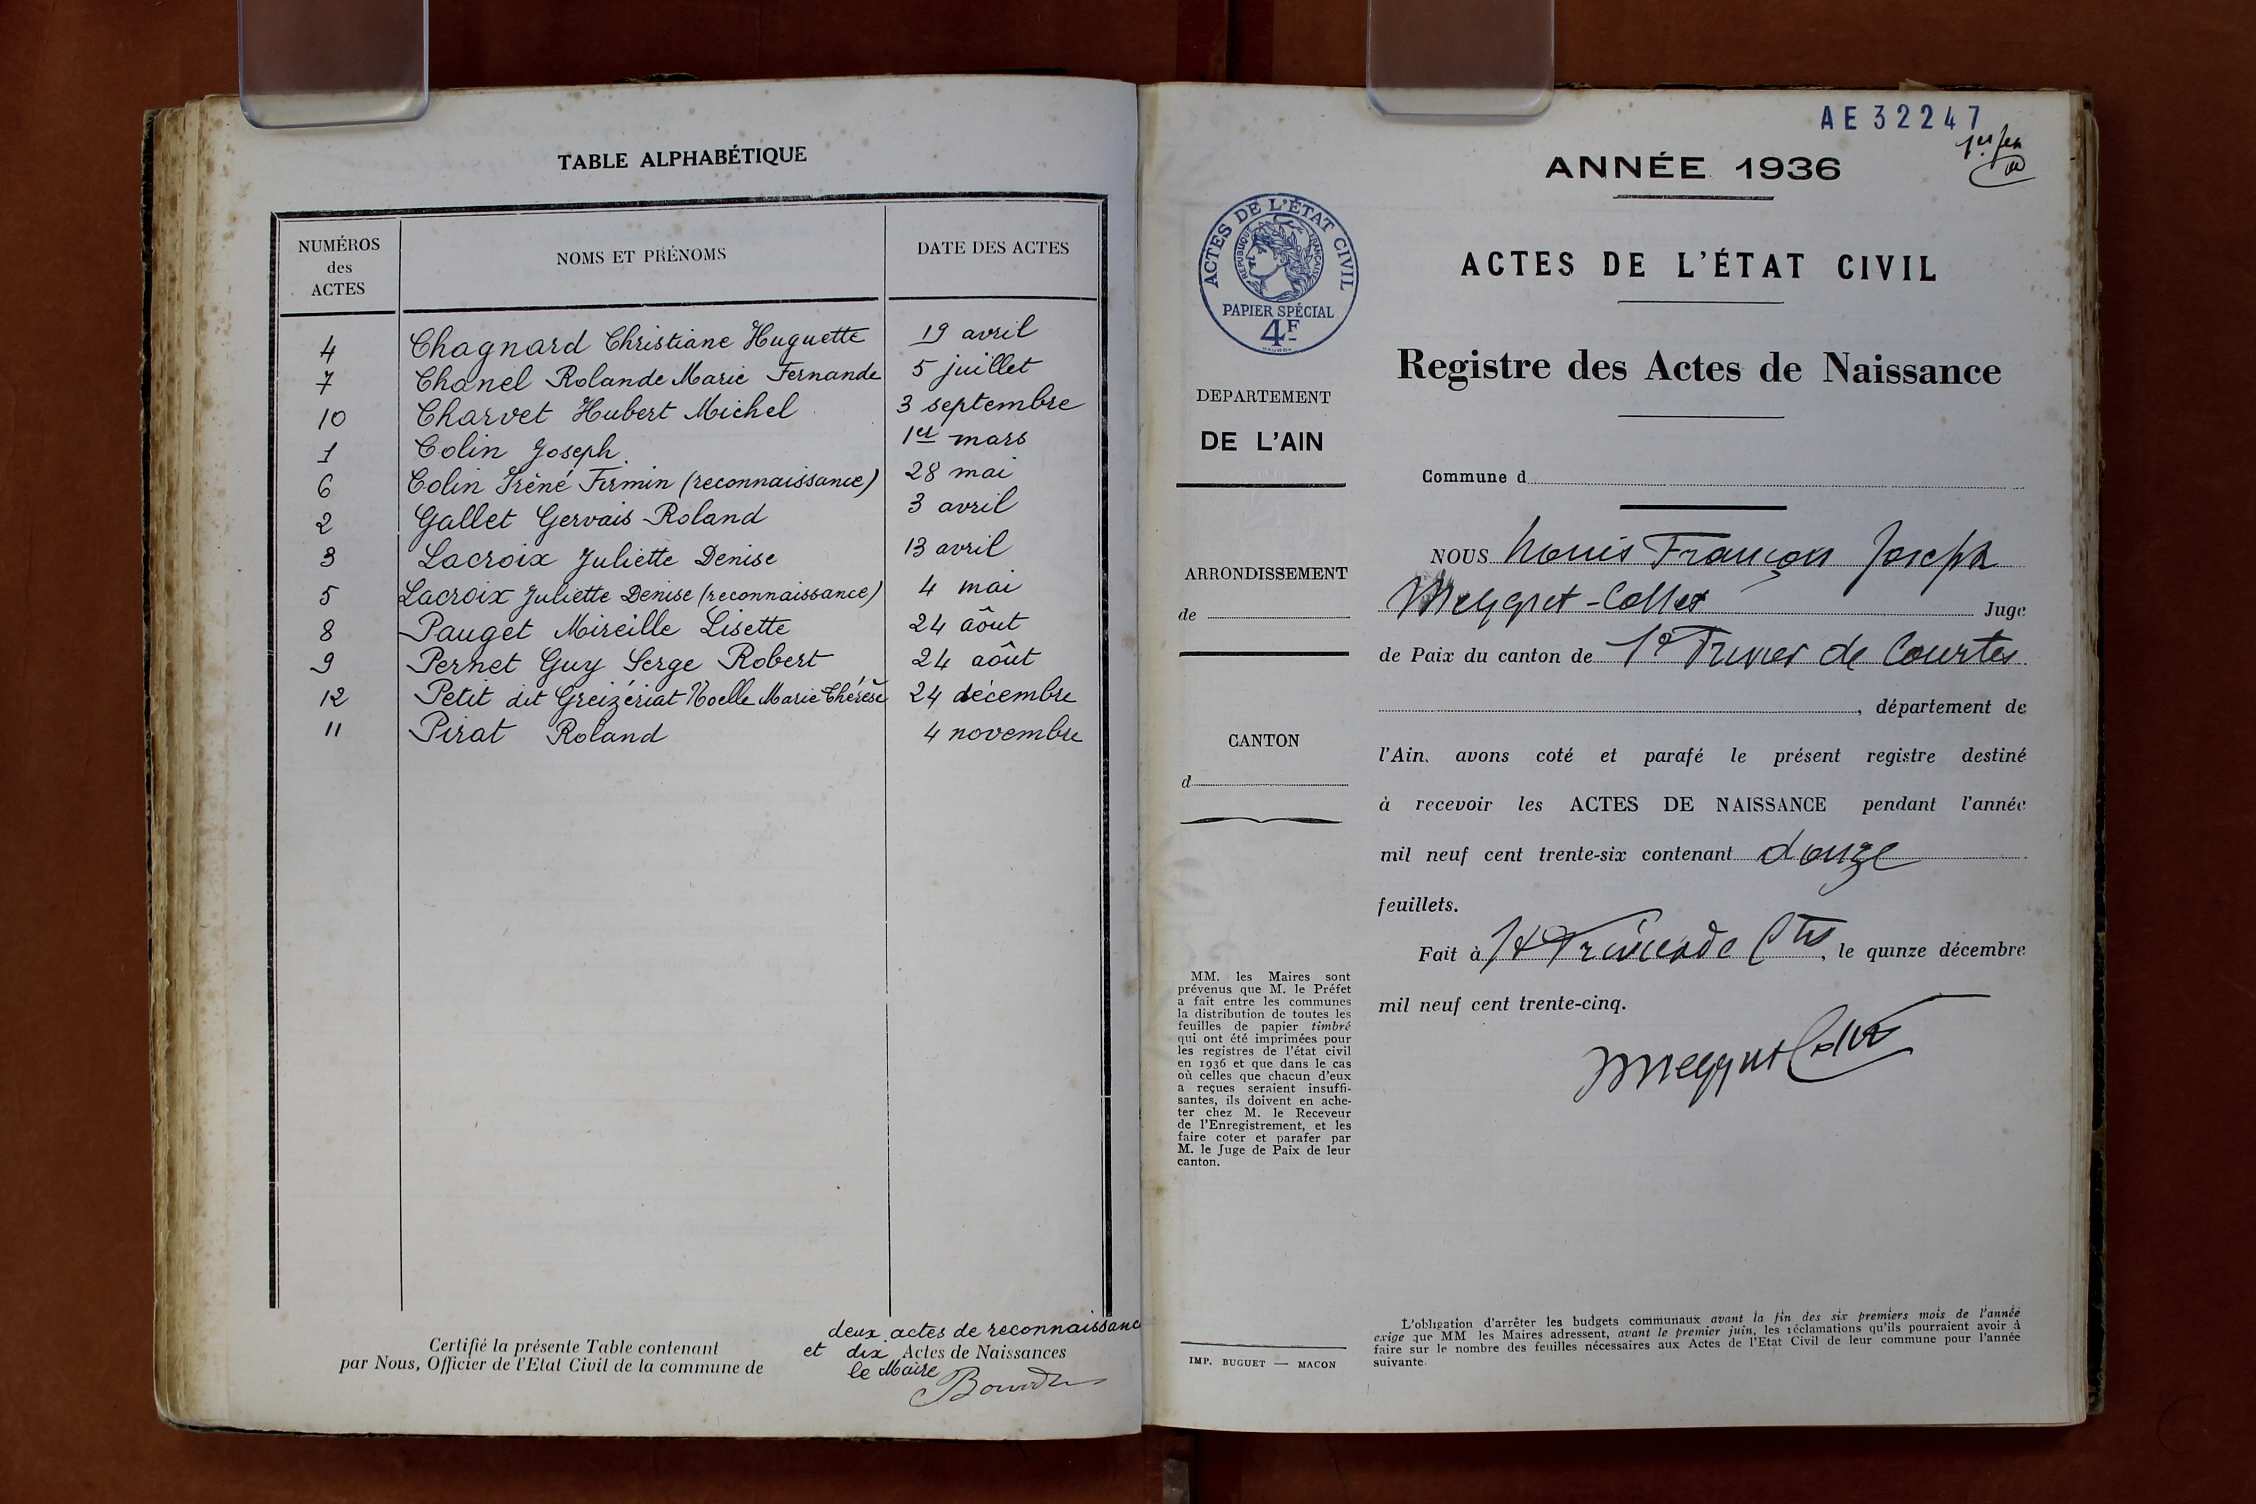 TABLE ALPHABÉTIQUE
NUMÉROS des ACTES NOMS ET PRÉNOMS DATE DES ACTES
4 Chagnard Christiane Huguette 19 avril
7 Chanel Rolande Marie Fernande 5 juillet
10 Charvet Hubert Michel 3 septembre
1 Colin Joseph 1er mars
6 Colin Iréné Firmin (reconnaissance) 28 mai
2 Gallet Gervais Roland 3 avril
3 Lacroix Juliette Denise 13 avril
5 Lacroix Juliette Denise (reconnaissance) 4 mai
8 Pauget Mireille Lisette 24 aôut
9 Pernet Guy Serge Robert 24 aôut
12 Petit dit Greizériat Noelle Marie Thérèse 24 décembre
11 Pirat Roland 4 novembre
deux actes de reconnaissanc
Certifié la présente Table contenant et dix Actes de Naissances
par Nous, Officier de l'Etat Civil de la commune de le Maire
AE32247
ANNÉE 1936
ACTES DE L'ÉTAT CIVIL
RÉPUBLIQUE FRANÇAISE
PAPIER SPÉCIAL
4F
ACTES DE L'ÉTAT CIVIL
Registre des Actes de Naissance
DEPARTEMENT
DE L'AIN
Commune d
ARRONDISSEMENT
de
CANTON
d
NOUS Louis François Joseph
Meyget-Collet Juge
de Paix du canton de St Trivier de Courtes
, département de
l'Ain, avons coté et parafé le présent registre destiné
à recevoir les ACTES DE NAISSANCE pendant l'année
mil neuf cent trente-six contenant douze
feuillets.
Fait à St Trivier de Ctes, le quinze décembre
mil neuf cent trente-cinq.
MM. les Maires sont
prévenus que M. le Préfet
a fait entre les communes
la distribution de toutes les
feuilles de papier timbré
qui ont été imprimées pour
les registres de l'état civil
en 1936 et que dans le cas
où celles que chacun d'eux
a reçues seraient insuffi-
santes, ils doivent en ache-
ter chez M. le Receveur
de l'Enregistrement, et les
faire coter et parafer par
M. le Juge de Paix de leur
canton.
IMP. BUGUET — MACON
L'obligation d'arrêter les budgets communaux avant la fin des six premiers mois de l'année
exige que MM les Maires adressent, avant le premier juin, les réclamations qu'ils pourraient avoir à
faire sur le nombre des feuilles nécessaires aux Actes de l'Etat Civil de leur commune pour l'année
suivante.